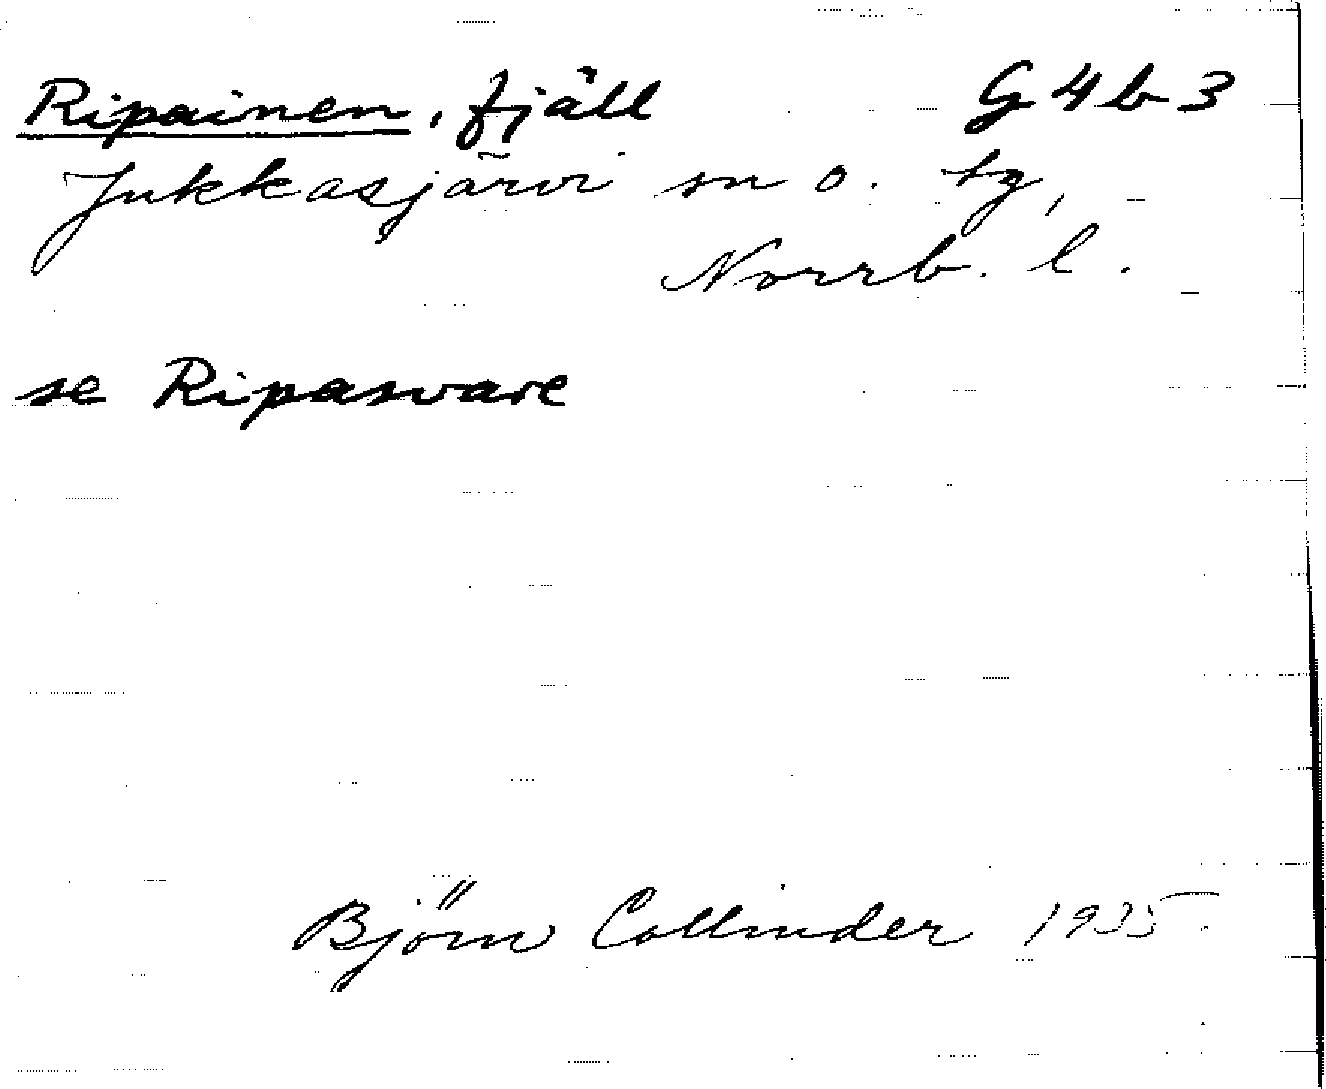 Ripainen, fjäll G4b3
Jukkasjärvi sn o. tg,
Norrb. l.
se Ripasvare
Björn Collinder 1935.